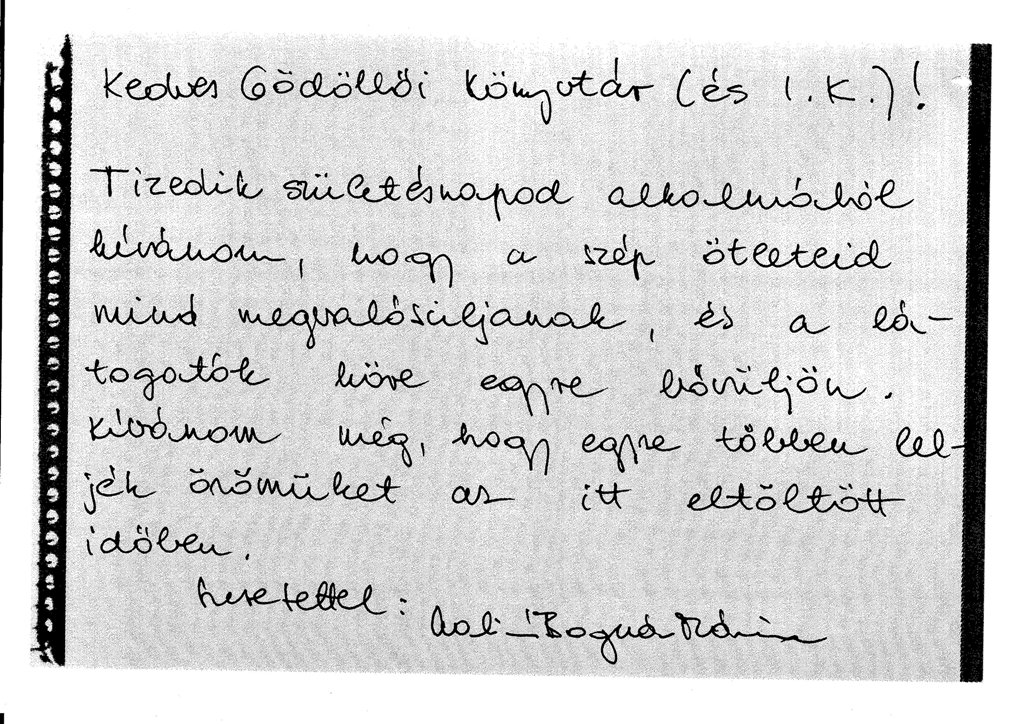 Kedves Gödöllői Könyvtár (és I.K.)!
Tizedik születésnapod alkalmából
kívánom, hogy a szép ötleteid
mind megvalósuljanak, és a lá-
togatók köre egyre bővüljön.
Kívánom még, hogy egyre többen lel-
jék örömüket az itt eltöltött
időben.
Szeretettel: